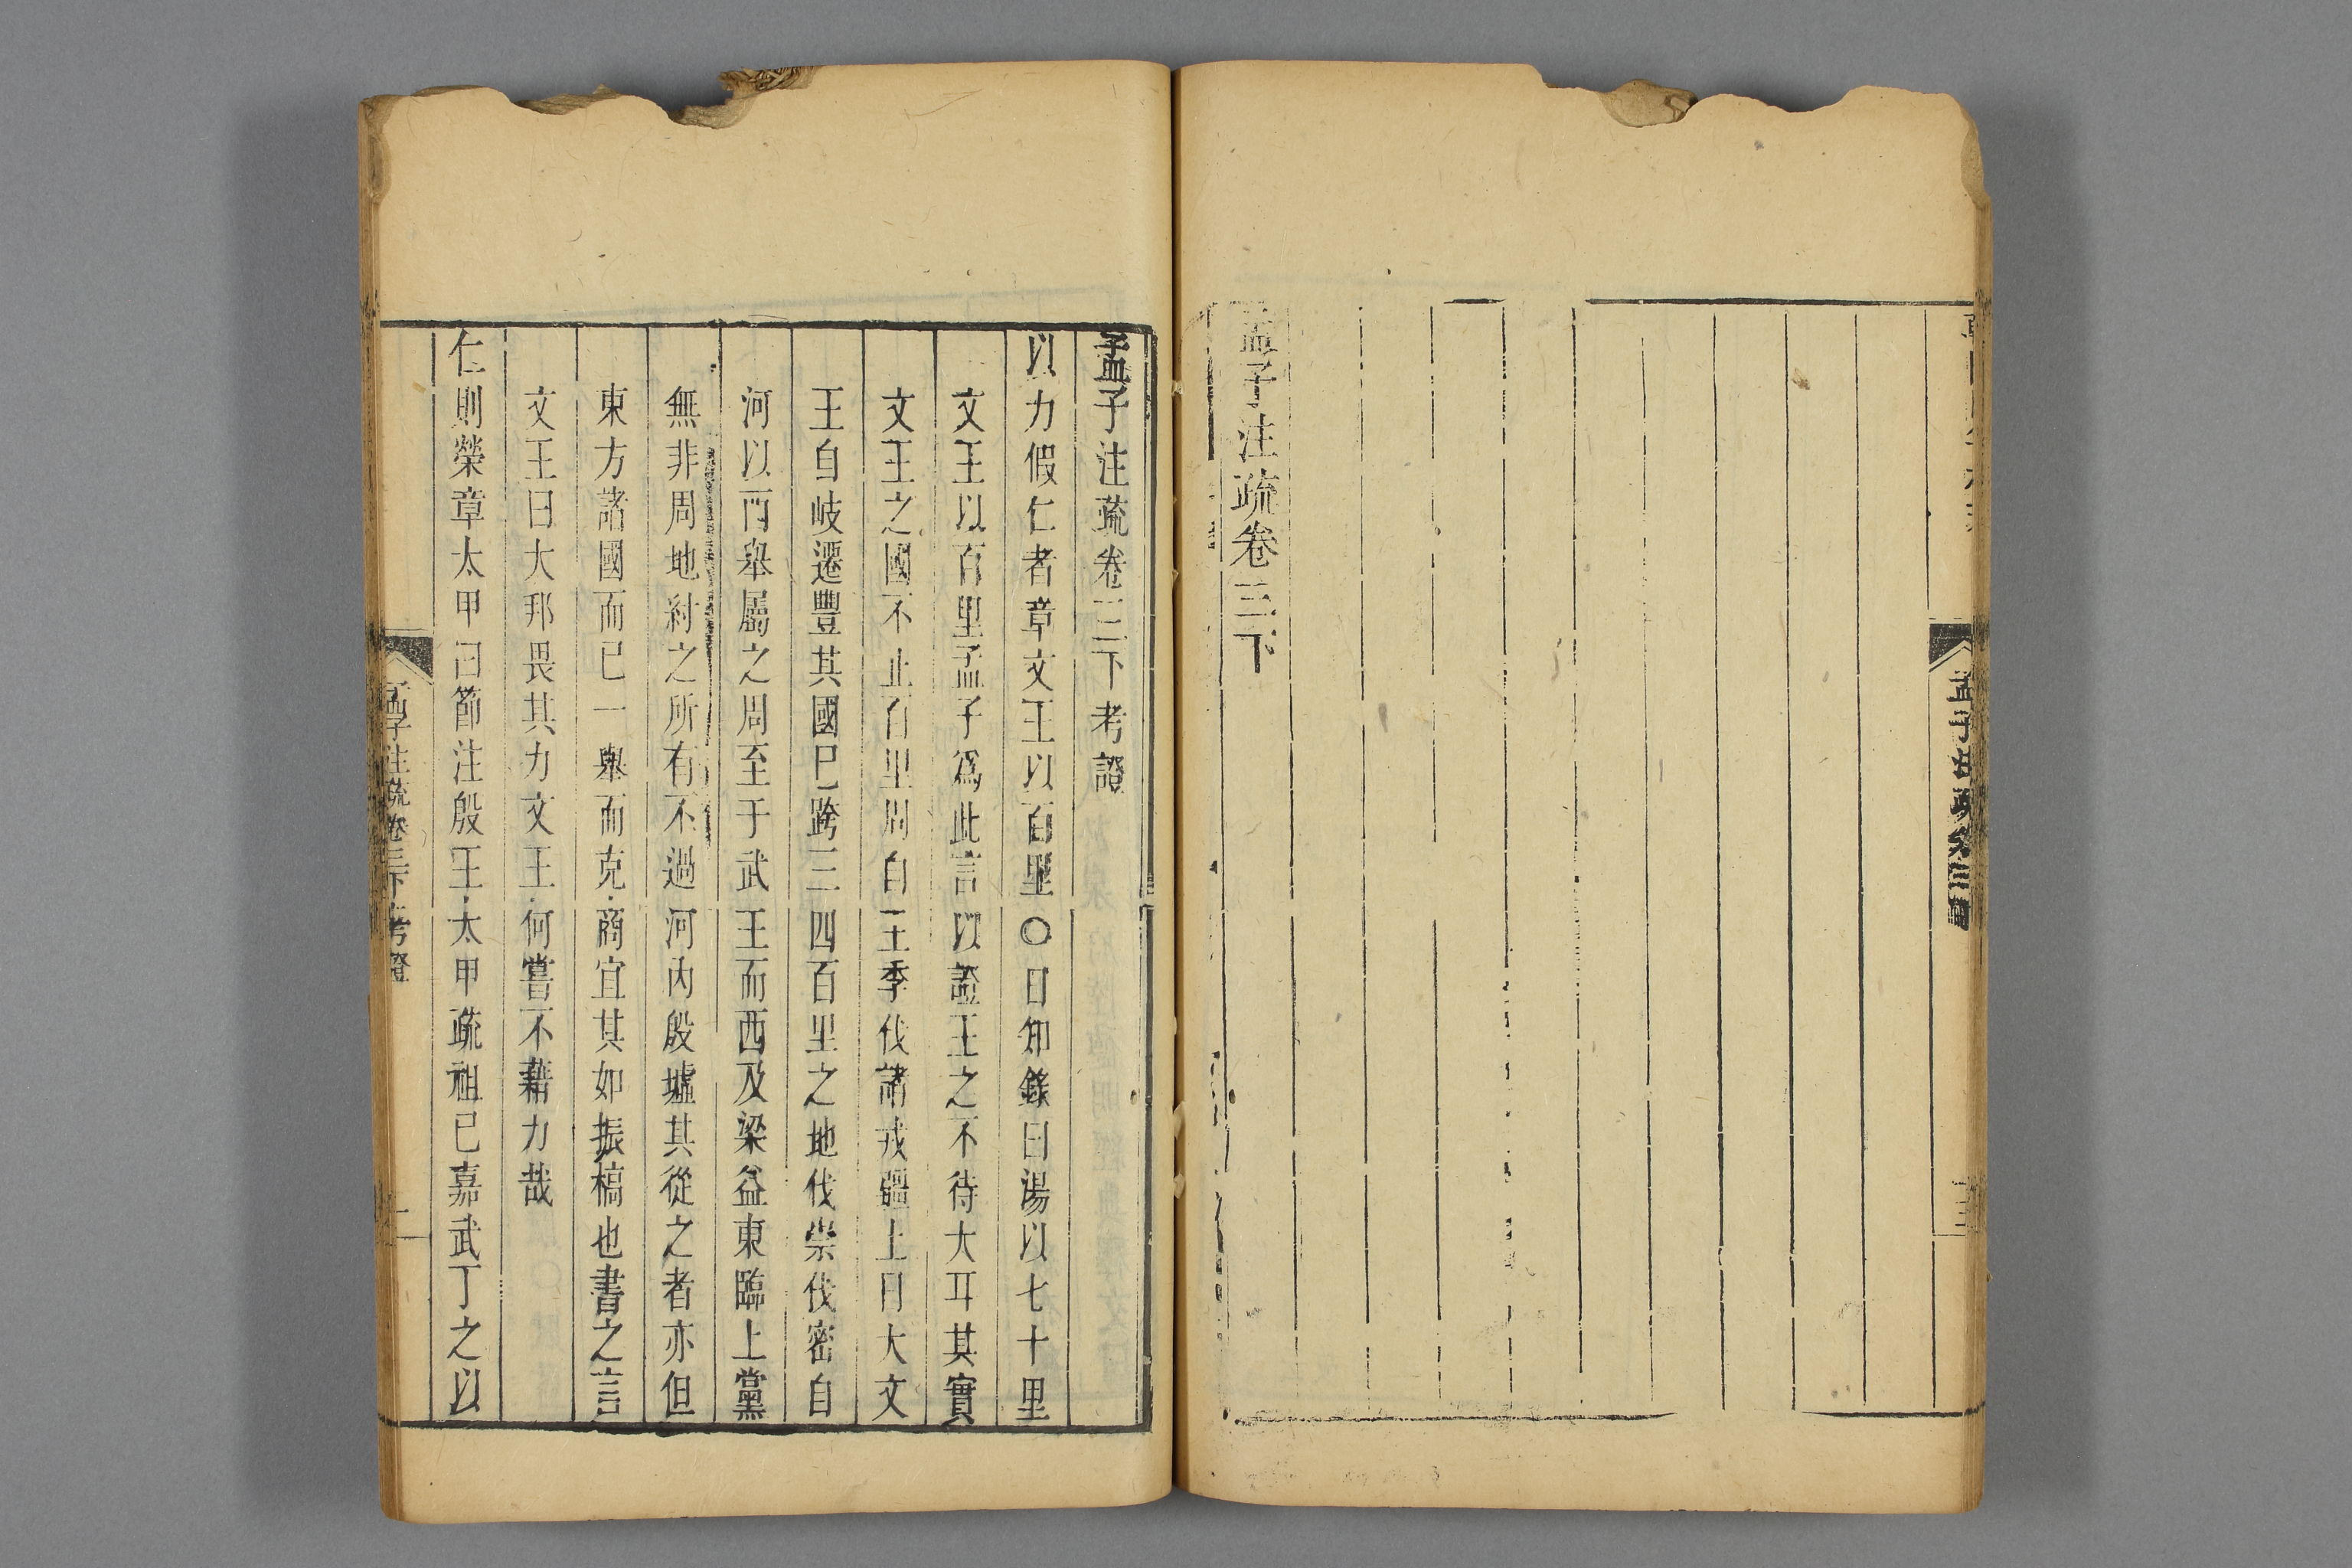 孟子注疏卷三下
孟子注疏卷三下考證
以力假仁者章文王以百里〇日知錄曰湯以七十里
文王以百里孟子為此言以證王之不待大耳其實
文王之國不止百里周自王季伐諸戎疆土日大文
王自岐遷豐其國已跨三四百里之地伐崇伐密自
河以西舉屬之周至于武王而西及梁益東臨上黨
無非周地紂之所有不過河內殷墟其從之者亦但
東方諸國而已一舉而克商宜其如振槁也書之言
文王曰大邦畏其力文王何嘗不藉力哉
仁則榮章太甲曰節注殷王太甲疏祖已嘉武丁之以
孟子注疏卷三下考證